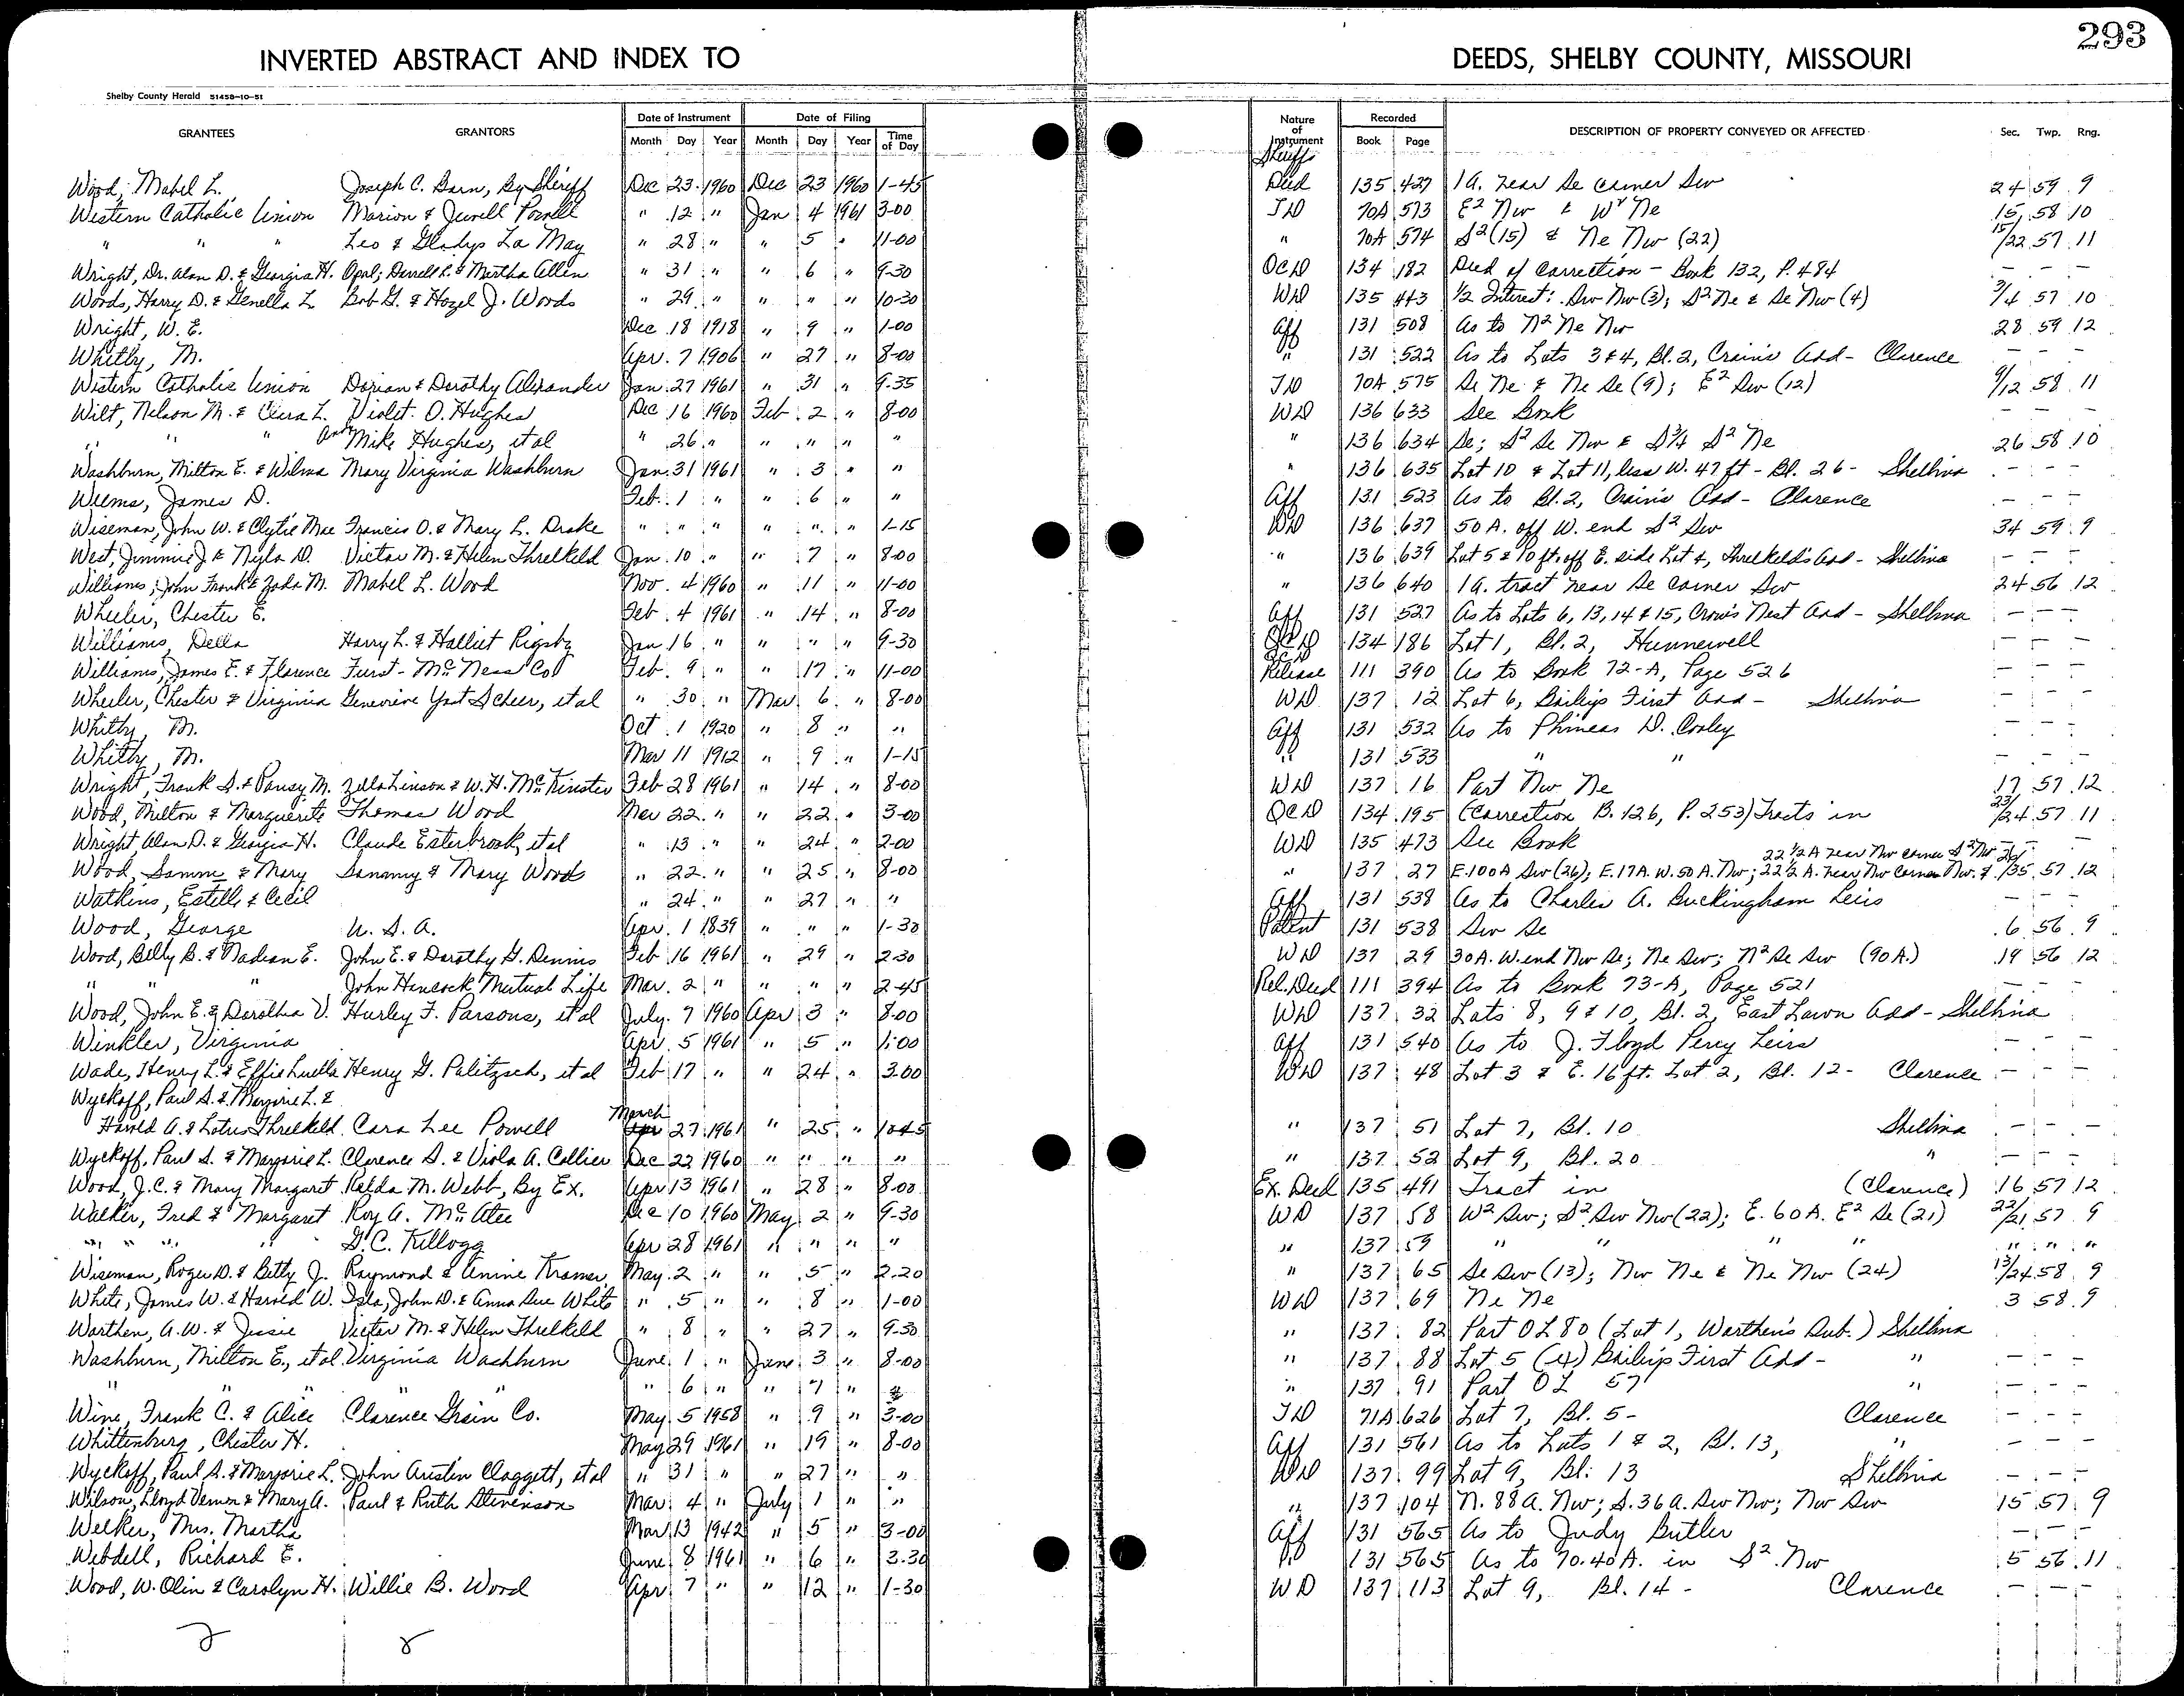 293
INVERTED ABSTRACT AND INDEX TO DEEDS, SHELBY COUNTY, MISSOURI
Shelby County Herald 51458-10-51
GRANTEES GRANTORS Date of Instrument Month Day Year Date of Filing Month Day Year Time of Day Nature of Instrument Recorded Book Page DESCRIPTION OF PROPERTY CONVEYED OR AFFECTED Sec. Twp. Rng.
Wood, Mabel L. Joseph C. Barn, By Sheriff Dec 23 1960 Dec 23 1960 1-45 Sheriffs Deed 135 427 1 A. near Se corner Sw 24 59 9
Western Catholic Union Marion & Jewell Powell " 12 " Jan 4 1961 3-00 TD 70A 573 E2 Nw & W2 Ne 15 58 10
" " " Leo & Gladys La May " 28 " " 5 " 11-00 " 70A 574 S2 (15) & Ne Nw (22) 15/22 57 11
Wright, Dr. Alan D. & Georgia H. Opal; Darrell L. & Martha Allen " 31 " " 6 " 9-30 QCD 134 182 Deed of Correction - Book 132, P. 484 - - -
Woods, Harry D. & Genella L Bob G. & Hazel J. Woods " 29 " " " " 10-30 WD 135 443 1/2 Interest: Sw Nw (3); S2 Ne & Se Nw (4) 3/4 57 10
Wright, W. E. Dec 18 1918 " 9 " 1-00 Aff 131 508 As to N2 Ne Nw 28 59 12
Whitby, M. Apr. 7 1906 " 27 " 8-00 " 131 522 As to Lots 3 & 4, Bl. 2, Crain's Add - Clarence - - -
Western Catholic Union Dorian & Dorothy Alexander Jan. 27 1961 " 31 " 9-35 TD 70A 575 Se Ne & Ne Se (9); E2 Sw (12) 9/12 58 11
Wilt, Nelson M. & Clara L. Violet O. Hughes Dec 16 1960 Feb 2 " 8-00 WD 136 633 See Book - - -
" " " Mike Hughes, et al " 26 " " " " " " 136 634 Se; S2 Se Nw & S3/4 S2 Ne 26 58 10
Washburn, Milton E. & Wilma Mary Virginia Washburn Jan. 31 1961 " 3 " " " 136 635 Lot 10 & Lot 11, less W. 47 ft - Bl. 26 - Shelbina - - -
Weems, James D. Feb. 1 " " 6 " " Aff 131 523 As to Bl. 2, Crain's Add - Clarence - - -
Wiseman, John W. & Clytie Mae Francis O. & Mary L. Drake " " " " " " 1-15 WD 136 637 50 A. off W. end S2 Sw 34 59 9
West, Jimmie J & Nyla D. Victor M. & Helen Threlkeld Jan. 10 " " 7 " 8-00 " 136 639 Lot 5 & 10 ft. off E. side Lot 4, Threlkeld's Add - Shelbina - - -
Williams, John Frank & Zada M. Mabel L. Wood Nov. 4 1960 " 11 " 11-00 " 136 640 1 A. tract near Se corner Sw 24 56 12
Wheeler, Chester E. Feb. 4 1961 " 14 " 8-00 Aff 131 527 As to Lots 6, 13, 14 & 15, Crow's Nest Add - Shelbina - - -
Williams, Della Harry L. & Halliet Rigsby Jan. 16 " " " " 9-30 QCD 134 186 Lot 1, Bl. 2, Hunnewell - - -
Williams, James E. & Florence Furst - McNess Co Feb. 9 " " 17 " 11-00 QCD Release 111 390 As to Book 72-A, Page 526 - - -
Wheeler, Chester & Virginia Genevieve Scheer, et al " 30 " Mar 6 " 8-00 WD 137 12 Lot 6, Bailey's First Add - Shelbina - - -
Whitby, M. Oct. 1 1920 " 8 " " Aff 131 532 As to Phineas D. Cooley - - -
Whitby, M. Mar 11 1912 " 9 " 1-15 " 131 533 " " - - -
Wright, Frank S. & Pansy M. Zella Linson & W. H. McKinster Feb 28 1961 " 14 " 8-00 WD 137 16 Part Nw Ne 17 57 12
Wood, Milton & Marguerite Thomas Wood Mar 22 " " 22 " 3-00 QCD 134 195 (Correction B. 126, P. 253) Tracts in 23/24 57 11
Wright Alan D. & Georgia H. Claude Esterbrook, et al " 13 " " 24 " 2-00 WD 135 473 See Book - -
Wood, Samm & Mary Sammy & Mary Woods " 22 " " 25 " 8-00 " 137 27 E. 100 A Sw (26); E. 17 A. W. 50 A. Nw; 22 1/2 A. near Nw corner Nw; & 22 1/2 A near Nw corner S2 Nw 26/35 57 12
Watkins, Estelle & Cecil " 24 " " 27 " " Aff 131 538 As to Charles A. Buckingham Heirs - -
Wood, George U. S. A. Apr. 1 1839 " " " 1-30 Patent 131 538 Sw Se 6 56 9
Wood, Billy B. & Nadean E. John E. & Dorothy G. Dennis Feb 16 1961 " 29 " 2-30 WD 137 29 30 A. W. end Nw Se; Ne Sw; N2 Se Sw (90 A.) 19 56 12
" " " John Hancock Mutual Life Mar. 2 " " " " 2-45 Rel. Deed 111 394 As to Book 73-A, Page 521 - -
Wood, John E. & Dorothea V. Hurley F. Parsons, et al July 7 1960 Apr 3 " 8-00 WD 137 32 Lots 8, 9 & 10, Bl. 2, East Lawn Add - Shelbina
Winkler, Virginia Apr. 5 1961 " 5 " 1:00 Aff 131 540 As to J. Floyd Percy Heirs - - -
Wade, Henry L. & Effie Luella Henry G. Palitzsch, et al Feb 17 " " 24 " 3.00 WD 137 48 Lot 3 & E. 16 ft. Lot 2, Bl. 12 - Clarence - - -
Wyckoff, Paul S. & Marjorie L. &
Harold A. & Lotus Threlkeld Cara Lee Powell March 27 1961 " 25 " 10-45 " 137 51 Lot 7, Bl. 10 Shelbina - - -
Wyckoff, Paul S. & Marjorie L. Clarence S. & Viola A. Collier Dec 22 1960 " " " " " 137 52 Lot 9, Bl. 20 " - - -
Wood, J. C. & Mary Margaret Kalda M. Webb, By Ex. Apr 13 1961 " 28 " 8.00 Ex. Deed 135 491 Tract in (Clarence) 16 57 12
Walker, Fred & Margaret Roy A. McAtee Dec 10 1960 May 2 " 9-30 WD 137 58 W2 Sw; S2 Sw Nw (22); E. 60 A. E2 Se (21) 22/21 57 9
" " " " G. C. Kellogg Apr 28 1961 " " " " " 137 59 " " " " " " "
Wiseman, Roger D. & Betty J. Raymond & Kramer May 2 " " 5 " 2.20 " 137 65 Se Sw (13); Nw Ne & Ne Nw (24) 13/24 58 9
White, James W. & Harold W. Isla, John D. & Anna Sue White " 5 " " 8 " 1-00 WD 137 69 Ne Ne 3 58 9
Warthen, A. W. & Jessie Victor M. & Helen Threlkeld " 8 " " 27 " 9-30 " 137 82 Part OL 80 (Lot 1, Warthen's Sub.) Shelbina
Washburn, Milton E., et al Virginia Washburn June 1 " June 3 " 8-00 " 137 88 Lot 5 (4) Bailey's First Add - " - - -
" " " " " 6 " " 7 " " " 137 91 Part OL 57 " - - -
Wine, Frank C. & Alice Clarence Grain Co. May 5 1958 " 9 " 3-00 TD 71A 626 Lot 7, Bl. 5 - Clarence - - -
Whittenburg, Chester H. May 29 1961 " 19 " 8-00 Aff 131 561 As to Lots 1 & 2, Bl. 13, " - - -
Wyckoff, Paul S. & Marjorie L. John Austin Claggett, et al " 31 " " 27 " " WD 137 99 Lot 9, Bl. 13 Shelbina - - -
Wilson, Lloyd Vernon & Mary A. Paul & Ruth Stevenson Mar. 4 " July 1 " " " 137 104 N. 88 A. Nw; S. 36 A. Sw Nw; Nw Sw 15 57 9
Welker, Mrs. Martha Mar 13 1942 " 5 " 3-00 Aff 131 565 As to Judy Butler - - -
Webdell, Richard E. June 8 1961 " 6 " 3.30 131 565 As to 70.40 A. in S2 Nw 5 56 11
Wood, W. Olin & Carolyn H. Willie B. Wood Apr 7 " " 12 " 1-30 WD 137 113 Lot 9, Bl. 14 - Clarence - - -